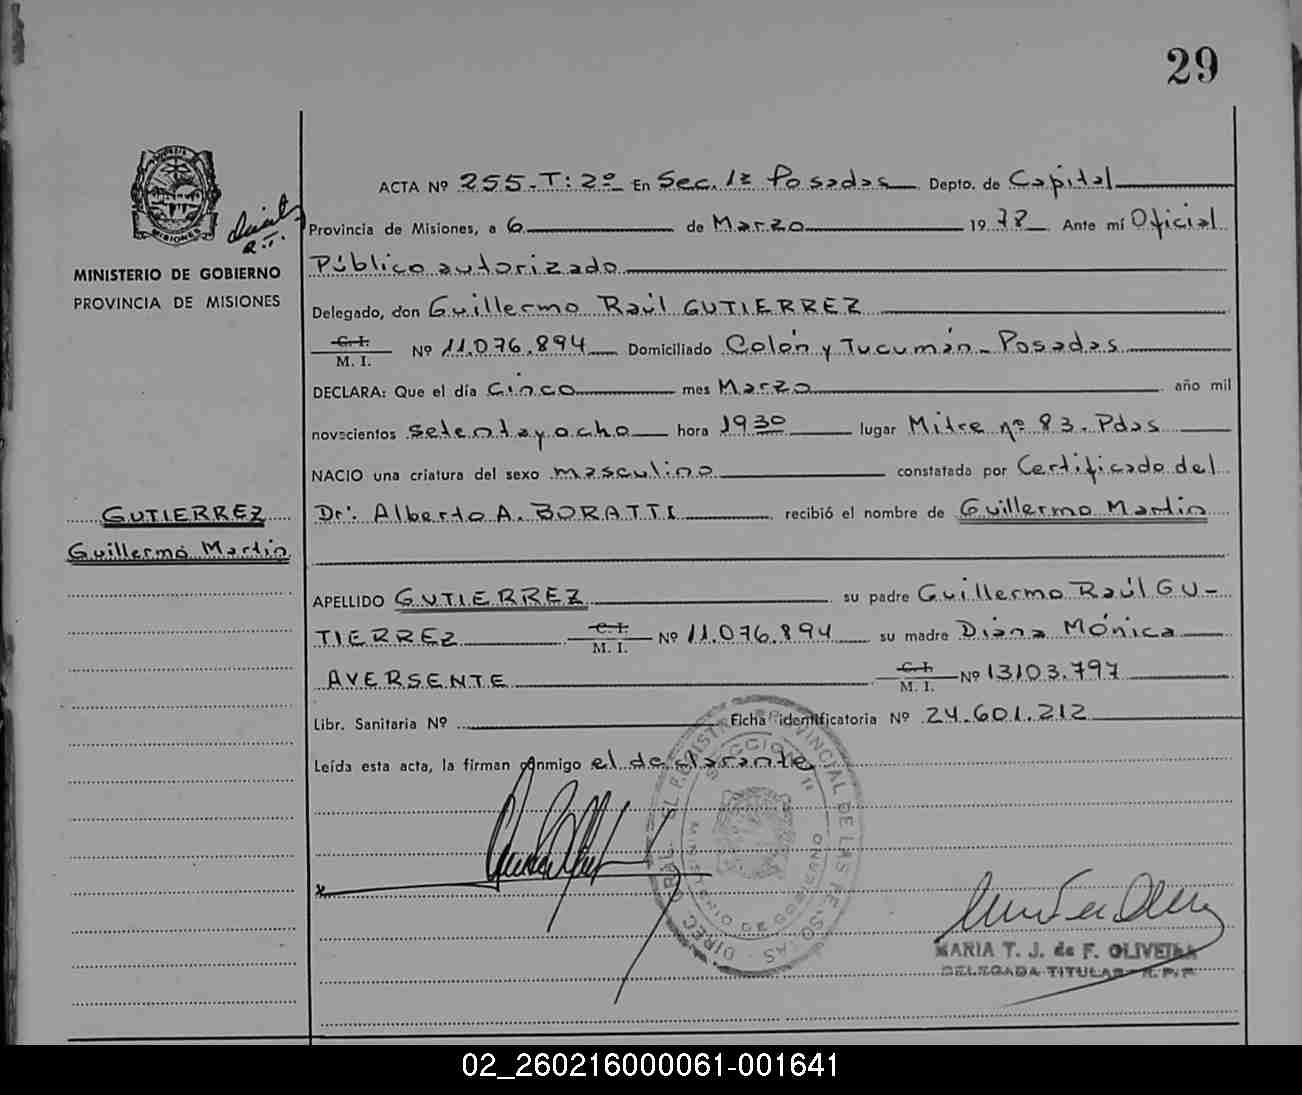 29
ACTA Nº 255-T: 2º En Sec. 1ª Posadas Depto. de Capital
Provincia de Misiones, a 6 de Marzo 1978 Ante mí Oficial
Público autorizado
MINISTERIO DE GOBIERNO
PROVINCIA DE MISIONES
Delegado, don Guillermo Raúl GUTIERREZ
C. I.
M. I. Nº 11.076.894 Domiciliado Colón y Tucumán - Posadas
DECLARA: Que el día cinco mes Marzo año mil
novecientos setenta y ocho hora 1930 lugar Mitre nº 83. Pdas
NACIO una criatura del sexo masculino constatada por Certificado del
GUTIERREZ
Guillermo Martin
Dr: Alberto A. BORATTI recibió el nombre de Guillermo Martin
APELLIDO GUTIERREZ su padre Guillermo Raúl GU-
TIERREZ C. I. M. I. Nº 11.076.894 su madre Diana Mónica
AVERSENTE C. I. M. I. Nº 13103.797
Libr. Sanitaria Nº Ficha identificatoria Nº 24.601.212
Leída esta acta, la firman conmigo el declarante
MARIA T. J. de F. OLIVEIRA
DELEGADA TITULAR R. P. P.
02_260216000061-001641